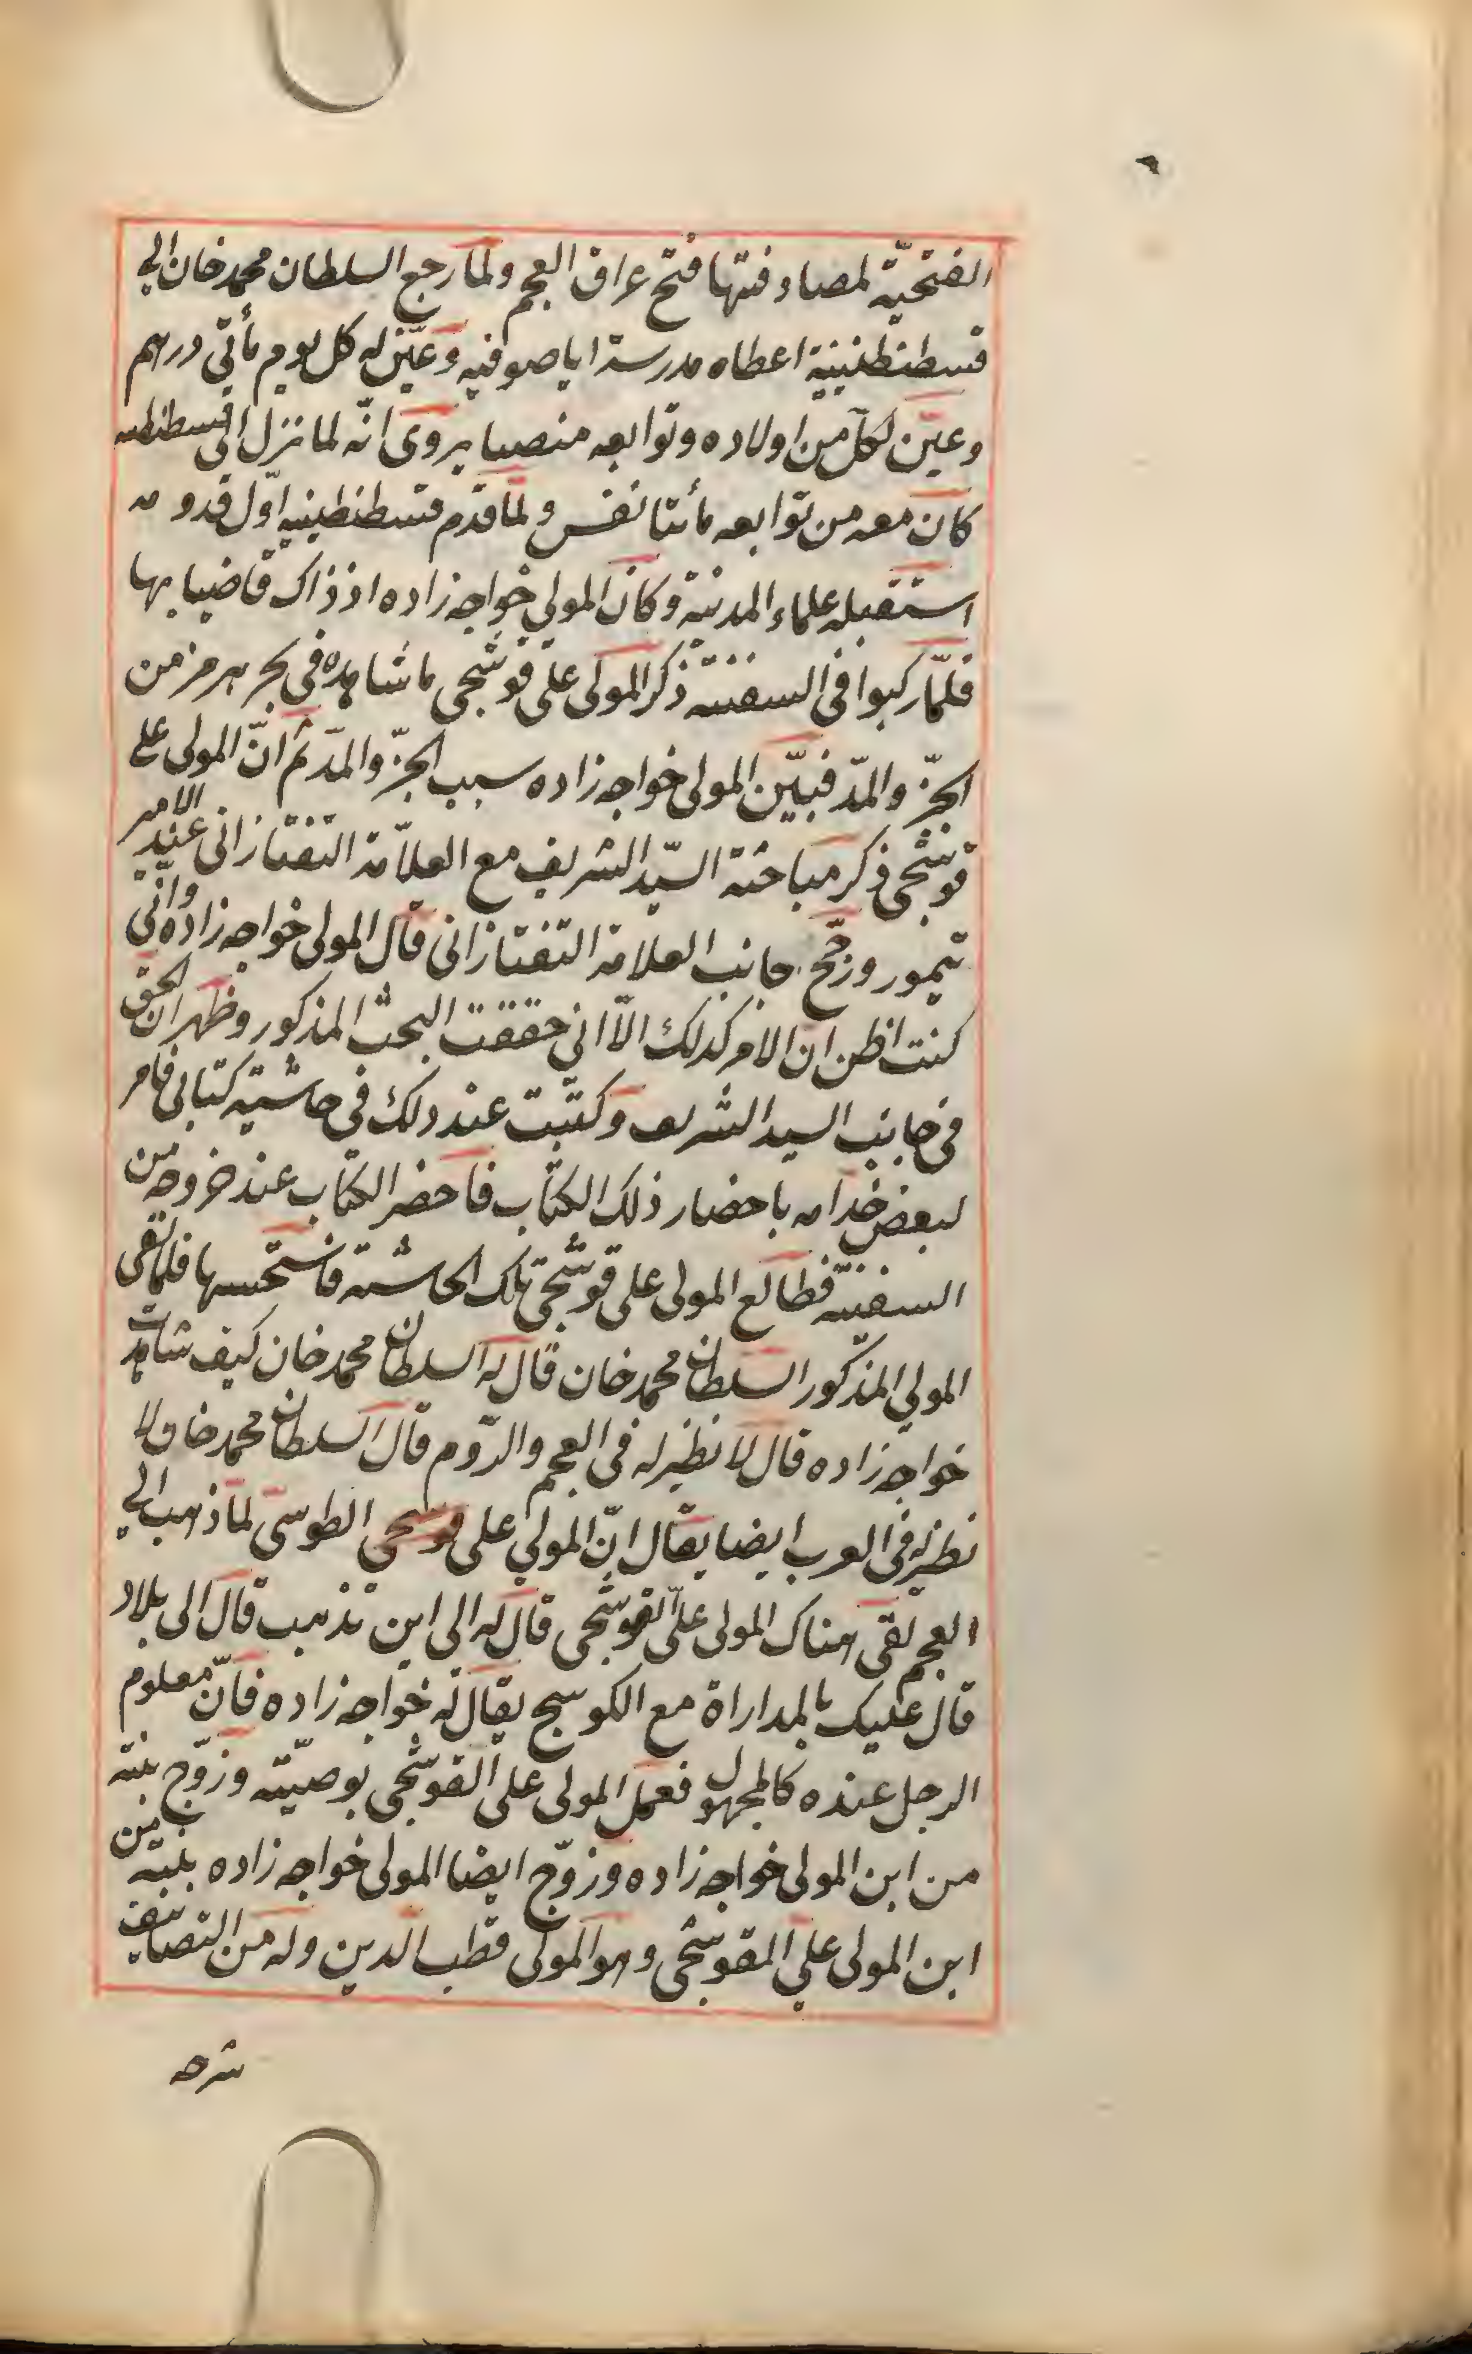 الفتحيّة لمصادفتها فتح عراق العجم ولمّا رجع السلطان محمد خان الى
قسطنطينية اعطاه مدرسة اياصوفيه وعيّن له كل يوم مأتي درهم
وعيّن لكلّ من اولاده وتوابعه منصبا يروى انّه لما نزل الى قسطنطنيه
كان معه من توابعه مأتا نفس ولمّا قدم قسطنطينيه اوّل قدومه
استقبله علماء المدنية وكان المولى خواجه زاده اذ ذاك قاضيا بها
فلمّا ركبوا فى السفينة ذكر المولى على قوشجى ما شاهده فى بحر هرمز من
الجزّ والمدّ فبيّن المولى خواجه زاده سبب الجزّ والمدّ ثم انّ المولى على
قوشجى ذكر مباحثة السيّد الشريف مع العلاّمة التفتازانى عند الامير
تيمور ورجّح جانب العلامة التفتازانى قال المولى خواجه زاده وانّى
كنت اظن ان الامر كذلك الاّ انى حققت البحث المذكور وظهر ان الحق
فى جانب السيد الشريف وكتبت عند ذلك فى حاشية كتابى فامر
لبعض خدامه باحضار ذلك الكتاب فاحضر الكتاب عند خروجه من
السفينة فطالع المولى على قوشجى تلك الحاشية فاستحسنها فلما لقى
المولى المذكور السلطان محمد خان قال له السلطان محمد خان كيف شاهدت
خواجه زاده قال لا نظير له فى العجم والروم قال السلطان محمد خان لا
نظير له فى العرب ايضا يقال انّ المولى على قوشجى الطوسى لمّا ذهب الى
العجم لقى هناك المولى علىّ القوشجى قال له الى اين تذهب قال الى بلاد
قال عليك بالمداراة مع الكوسج يقال له خواجه زاده فانّ معلوم
الرجل عنده كالمجهول فعمل المولى على القوشجى بوصيّته وزوّج بنته
من ابن المولى خواجه زاده وزوّج ايضا المولى خواجه زاده بنته من
ابن المولى على القوشجى وهو المولى قطب الدين وله من التصانيف
شرحه